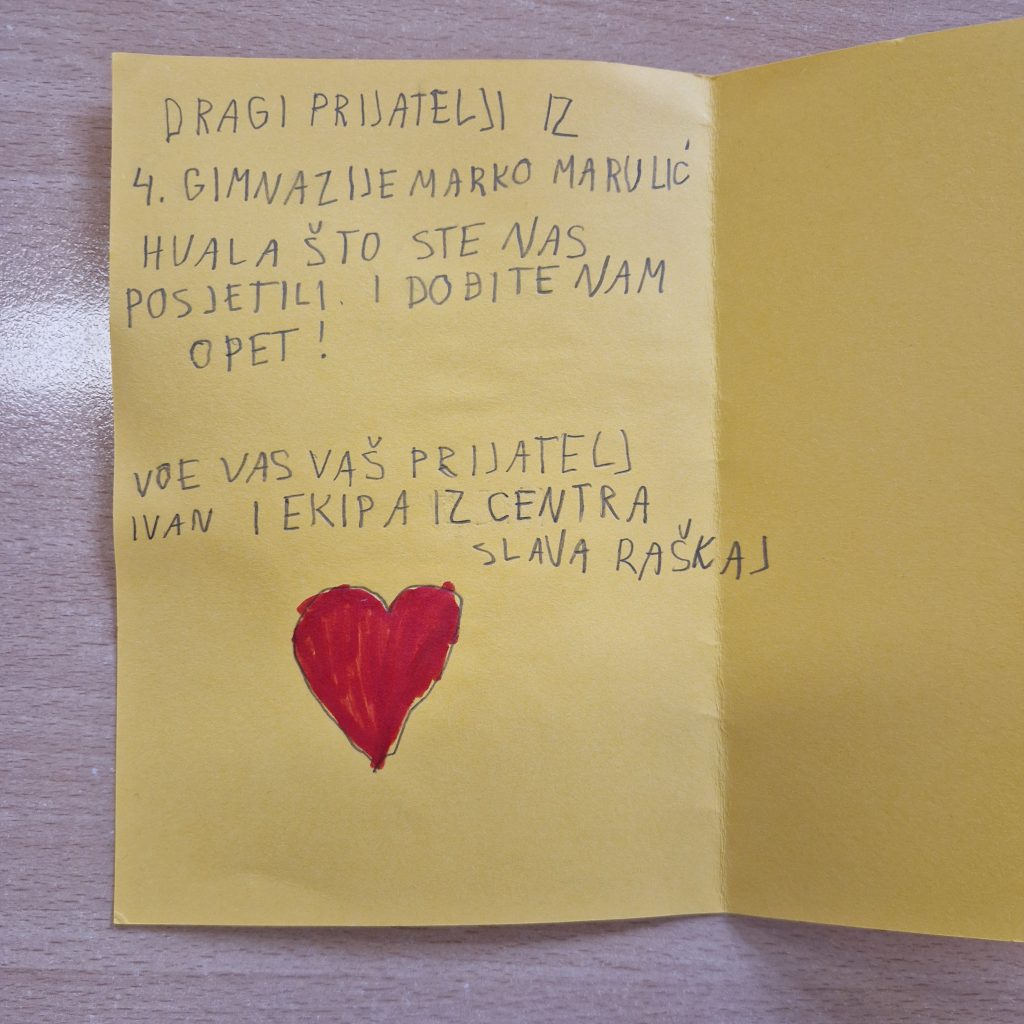 DRAGI PRIJATELJI IZ
4. GIMNAZIJE MARKO MARULIĆ
HVALA ŠTO STE NAS
POSJETILI. I DOĐITE NAM
OPET!
VOE VAS VAŠ PRIJATELJ
IVAN I EKIPA IZ CENTRA
SLAVA RAŠKAJ